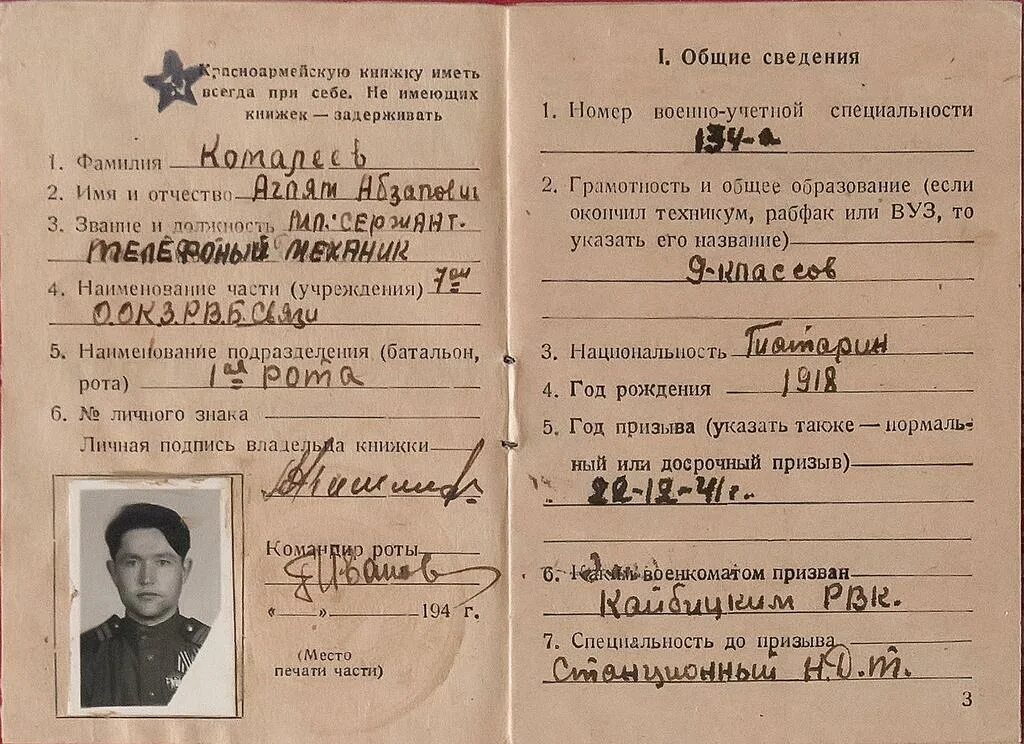 Красноармейскую книжку иметь
всегда при себе. Не имеющих
книжек — задерживать
1. Фамилия Комареев
2. Имя и отчество Агляm Абзапович
3. Звание и должность Мл: сержант.
телефоный механик
4. Наименование части (учреждения) 7ая
О.ОКЗ.Р.В.Б.Связи
5. Наименование подразделения (батальон,
рота) 1ая рота
6. № личного знака
Личная подпись владельца книжки
Командир роты
Иванов
«   » 194 г.
(Место
печати части)
I. Общие сведения
1. Номер военно-учетной специальности
134-а
2. Грамотность и общее образование (если
окончил техникум, рабфак или ВУЗ, то
указать его название)
9-классов
3. Национальность Татарин
4. Год рождения 1918
5. Год призыва (указать также — нормаль-
ный или досрочный призыв)
22-12-41г.
6. Каким военкоматом призван
Кайбицким РВК.
7. Специальность до призыва
Станционный Н.О.Т.
3